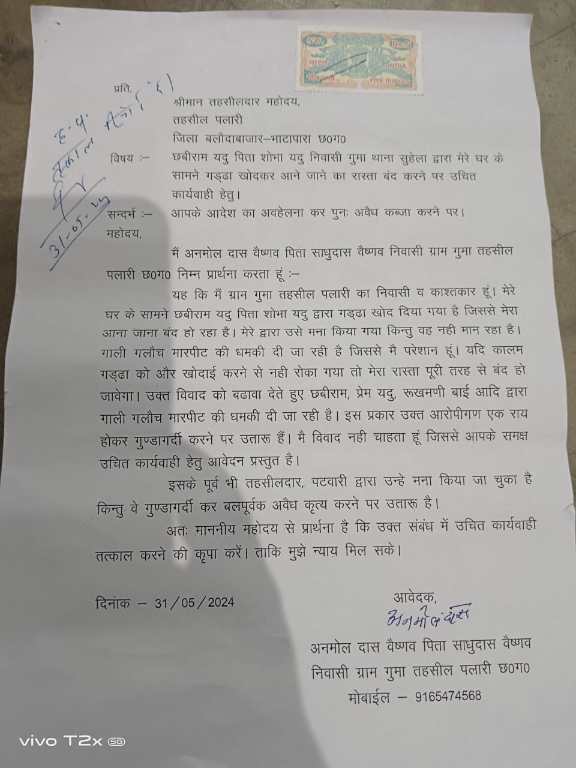 भारत INDIA
प्रति,
श्रीमान तहसीलदार महोदय,
तहसील पलारी
जिला बलौदाबाजार–भाटापारा छ0ग0
विषय :– छबीराम यदु पिता शोभा यदु निवासी गुमा थाना सुहेला द्वारा मेरे घर के
सामने गड्ढा खोदकर आने जाने का रास्ता बंद करने पर उचित
कार्यवाही हेतु।
सन्दर्भ :– आपके आदेश का अवहेलना कर पुनः अवैध कब्जा करने पर।
महोदय,
31-05-24
मैं अनमोल दास वैष्णव पिता साधुदास वैष्णव निवासी ग्राम गुमा तहसील
पलारी छ0ग0 निम्न प्रार्थना करता हूं :–
यह कि मैं ग्रान गुमा तहसील पलारी का निवासी व काश्तकार हूं। मेरे
घर के सामने छबीराम यदु पिता शोभा यदु द्वारा गड्ढा खोद दिया गया है जिससे मेरा
आना जाना बंद हो रहा है। मेरे द्वारा उसे मना किया गया किन्तु वह नही मान रहा है।
गाली गलौच मारपीट की धमकी दी जा रही है जिससे मै परेशान हूं। यदि कालम
गड्ढा को और खोदाई करने से नही रोका गया तो मेरा रास्ता पूरी तरह से बंद हो
जावेगा। उक्त विवाद को बढावा देते हुए छबीराम, प्रेम यदु, रूखमणी बाई आदि द्वारा
गाली गलौच मारपीट की धमकी दी जा रही है। इस प्रकार उक्त आरोपीगण एक राय
होकर गुण्डागर्दी करने पर उतारू हैं। मै विवाद नही चाहता हूं जिससे आपके समक्ष
उचित कार्यवाही हेतु आवेदन प्रस्तुत है।
इसके पूर्व भी तहसीलदार, पटवारी द्वारा उन्हे मना किया जा चुका है
किन्तु वे गुण्डागर्दी कर बलपूर्वक अवैध कृत्य करने पर उतारू है।
अतः माननीय महोदय से प्रार्थना है कि उक्त संबंध में उचित कार्यवाही
तत्काल करने की कृपा करें। ताकि मुझे न्याय मिल सके।
दिनांक – 31/05/2024
आवेदक,
अनमोल दास
अनमोल दास वैष्णव पिता साधुदास वैष्णव
निवासी ग्राम गुमा तहसील पलारी छ0ग0
मोबाईल – 9165474568
vivo T2x 5G